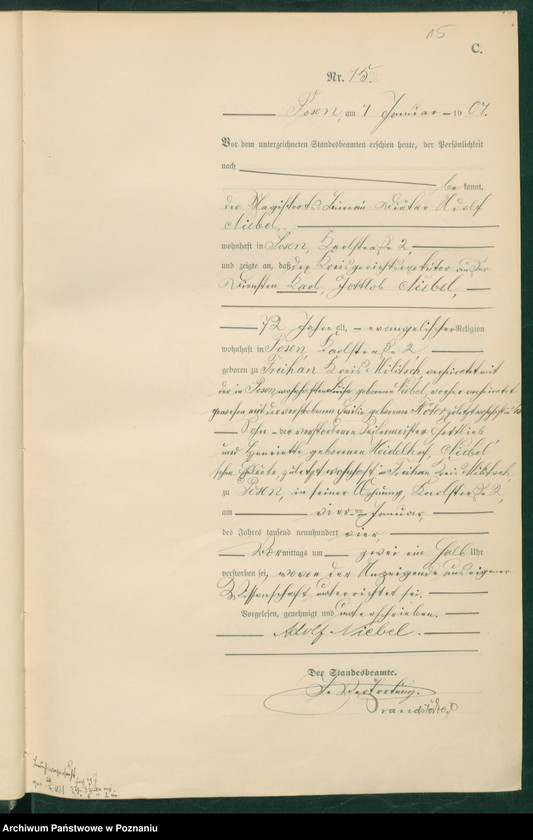 15
C.
Nr. 15.
Posen, am 7 Januar 1904.
Vor dem unterzeichneten Standesbeamten erschien heute, der Persönlichkeit
nach
be kannt,
der Magistrats Bureau Diätar Adolf
Niebel,
wohnhaft in Posen, Karlstraße 2,
und zeigte an, daß der Kreisgerichtsexekutor außer
Diensten Karl, Gottlob Niebel,
72 Jahre alt, evangelischer Religion
wohnhaft in Posen Karlstraße 2
geboren zu Freihan Kreis Militsch, verheiratet mit
der in Posen wohnhaften Luise geborenen Niebel, vorher verheiratet
gewesen mit der verstorbenen geborenen zuletzt wohnhaft in
Sohn des verstorbenen Seilermeister Gottlieb
und Henriette geborenen Heidelhof, Niebel
schen Eheleute, zuletzt wohnhaft in Freihan Kreis Militsch,
zu Posen, in seiner Wohnung, Karlstraße 2,
am vierten Januar,
des Jahres tausend neunhundert vier,
Vormittags um zwei ein halb Uhr
verstorben sei, wovon der Anzeigende aus eigener
Wissenschaft unterrichtet sei.
Vorgelesen, genehmigt und unterschrieben.
Adolf Niebel.
Der Standesbeamte.
In Vertretung.
Archiwum Państwowe w Poznaniu